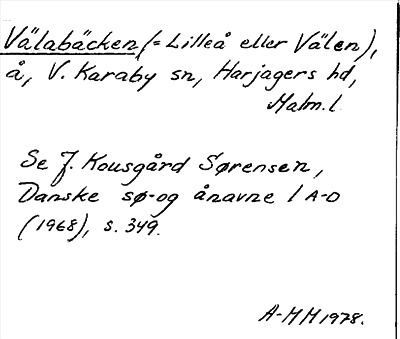 Välabäcken (= Lilleå eller Välen),
å, V. Karaby sn, Harjagers hd,
Malm. l.
Se J. Kousgård Sørensen,
Danske sø- og ånavne 1 A-D
(1968), s. 349.
A-M M 1978.